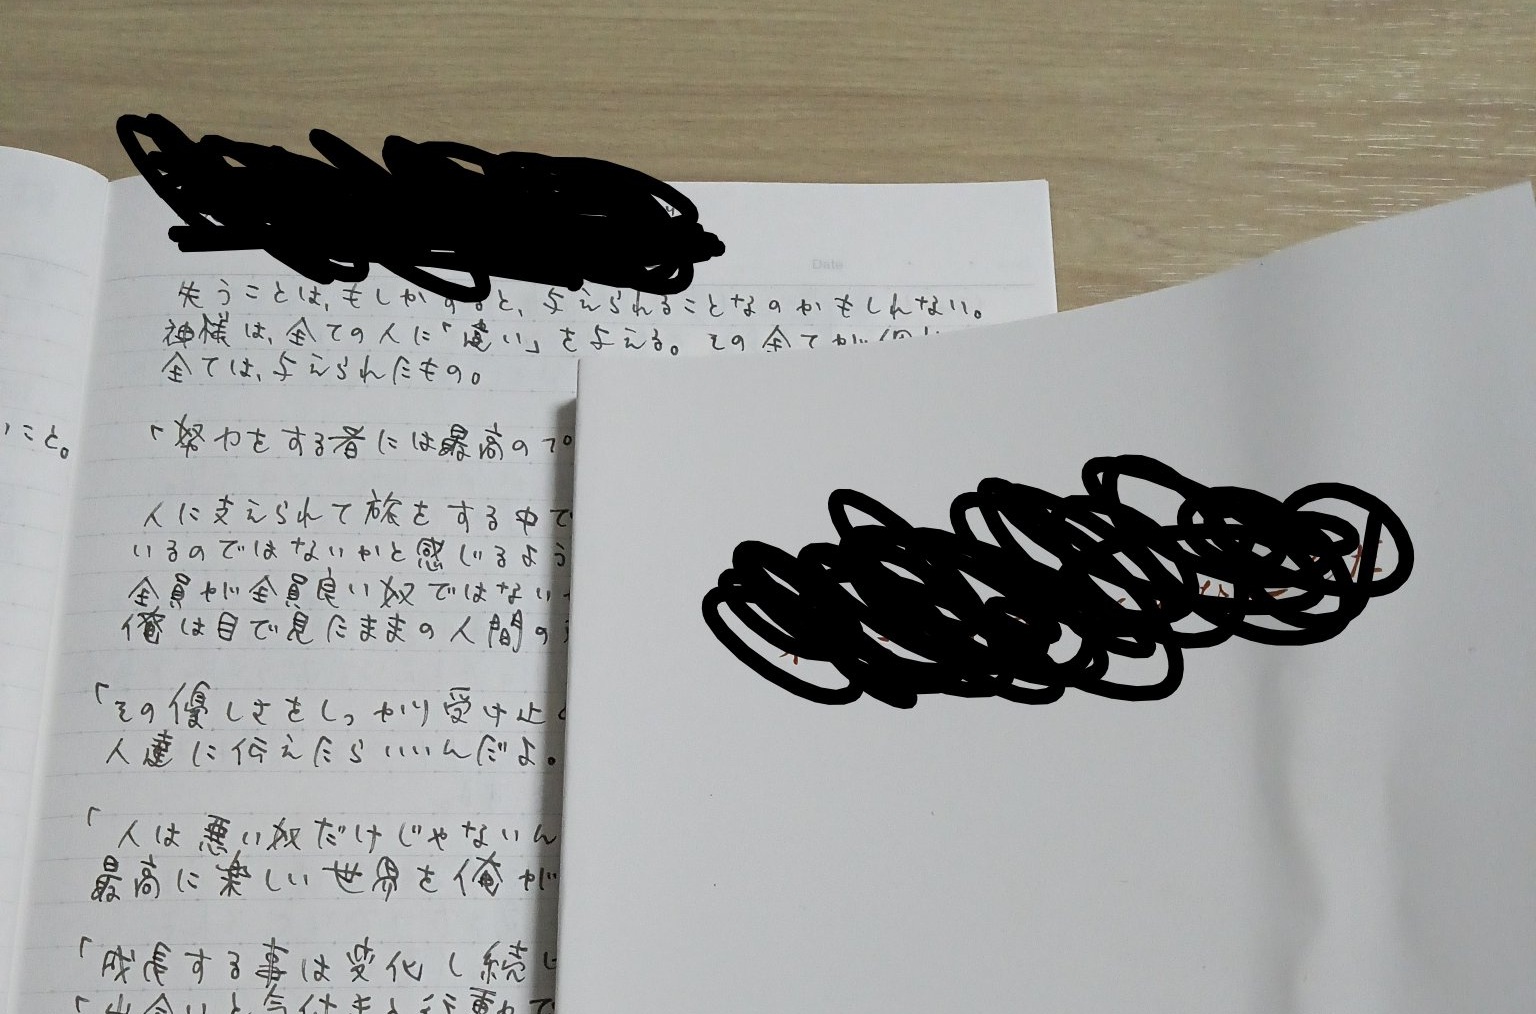 Date
失うことは、もしかすると、与えられることなのかもしれない。
神様は、全ての人に「違い」を与える。その全てが
全ては、与えられたもの。
いこと。
「努力をする者には最高のプ
人に支えられて旅をする中で
いるのではないかと感じるよう
全員が全員良い奴ではない
俺は目で見たままの人間の
「その優しさをしっかり受け止め
人達に伝えたらいいんだよ。
「人は悪い奴だけじゃないん
最高に楽しい世界を俺が
「成長する事は変化し続け
「出会いと気付きと行動で
た